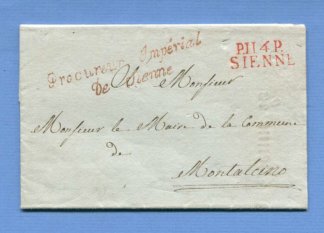 Procureur Impérial
De Sienne
P.114.P.
SIENNE
A Monsieur
Monsieur le Maire de la Commune
de
Montalcino